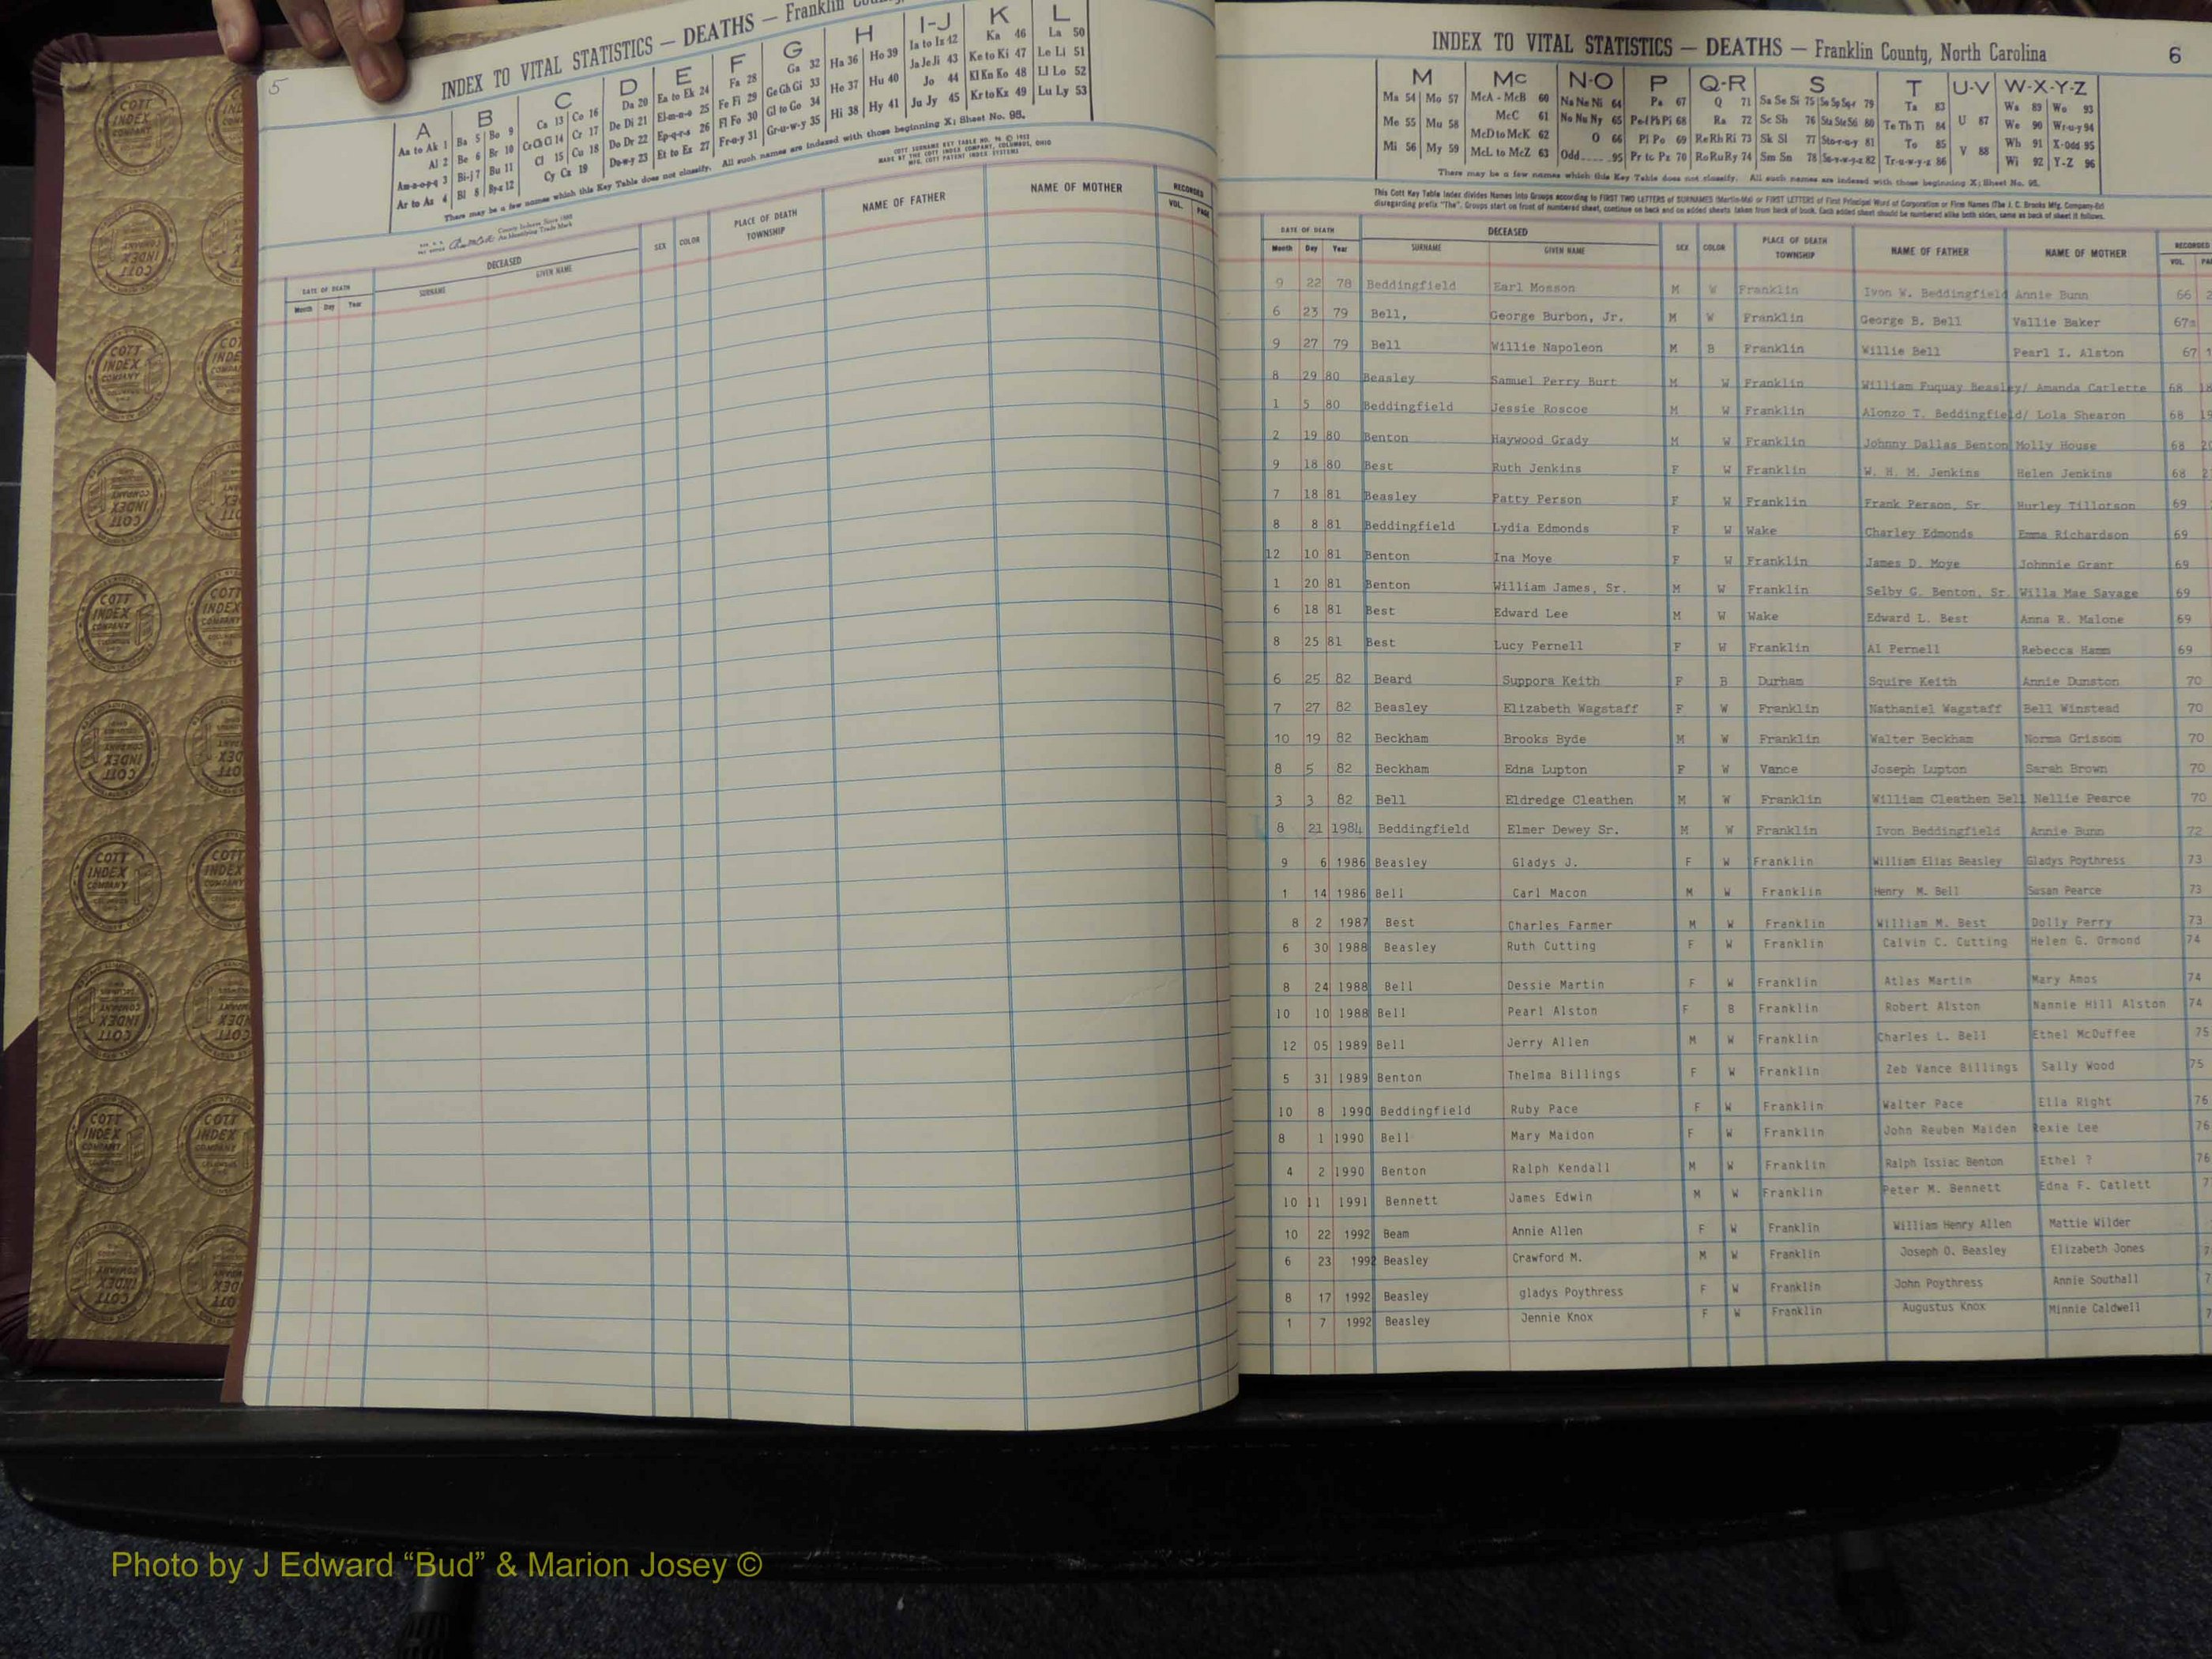 5
INDEX TO VITAL STATISTICS — DEATHS — Franklin
A B C D E F G H I-J K L
Aa to Ak 1 Ba 5 Bo 9 Ca 13 Co 16 Da 20 Ea to Ek 24 Fa 28 Ga 32 Ha 36 Ho 39 Ia to Iz 42 Ka 46 La 50
Al 2 Be 6 Br 10 Ce Ch Ci 14 Cr 17 De Di 21 El-m-n-o 25 Fe Fi 29 Ge Gh Gi 33 He 37 Hu 40 Ja Je Ji 43 Ke to Ki 47 Le Li 51
Am-n-o-p-q 3 Bi-j 7 Bu 11 Cl 15 Cu 18 Do Dr 22 Ep-q-r-s 26 Fl Fo 30 Gl to Go 34 Hi 38 Hy 41 Jo 44 Kl Kn Ko 48 Ll Lo 52
Ar to Az 4 Bl 8 By-z 12 Cy Cz 19 Du-w-y 23 Et to Ez 27 Fr-u-y 31 Gr-u-w-y 35 Ju Jy 45 Kr to Kz 49 Lu Ly 53
There may be a few names which this Key Table does not classify. All such names are indexed with those beginning X; Sheet No. 95.
COTT SURNAME KEY TABLE NO. 96 © 1952
MADE BY THE COTT INDEX COMPANY, COLUMBUS, OHIO
MFG. COTT PATENT INDEX SYSTEMS
County Indexes Since 1888
An Identifying Trade Mark
DATE OF DEATH DECEASED SEX COLOR PLACE OF DEATH TOWNSHIP NAME OF FATHER NAME OF MOTHER RECORDED
Month Day Year SURNAME GIVEN NAME VOL. PAGE
INDEX TO VITAL STATISTICS — DEATHS — Franklin County, North Carolina
6
M Mc N-O P Q-R S T U-V W-X-Y-Z
Ma 54 Mo 57 McA - McB 60 Na Ne Ni 64 Pa 67 Q 71 Sa Se Si 75 So Sp Sq-r 79 Ta 83 U 87 Wa 89 Wo 93
Me 55 Mu 58 McC 61 No Nu Ny 65 Pe-f Ph Pi 68 Ra 72 Sc Sh 76 Sta Ste S6 80 Te Th Ti 84 V 88 We 90 Wr-u-y 94
Mi 56 My 59 McD to McK 62 O 66 Pl Po 69 Re Rh Ri 73 Sk Sl 77 Sto-r-u-y 81 To 85 Wh 91 X-Odd 95
McL to McZ 63 Odd 95 Pr to Pz 70 Ro Ru Ry 74 Sm Sn 78 Su-v-w-y-z 82 Tr-u-w-y-z 86 Wi 92 Y-Z 96
There may be a few names which this Key Table does not classify. All such names are indexed with those beginning X; Sheet No. 95.
This Cott Key Table Index divides Names into Groups according to FIRST TWO LETTERS of SURNAMES (Martin-Ma) or FIRST LETTERS of First Principal Word of Corporation or Firm Names (The J. C. Brooks Mfg. Company-Br)
disregarding prefix "The". Groups start on front of numbered sheet, continue on back and on added sheets taken from back of book. Each added sheet should be numbered alike both sides, same as back of sheet it follows.
DATE OF DEATH DECEASED SEX COLOR PLACE OF DEATH TOWNSHIP NAME OF FATHER NAME OF MOTHER RECORDED
Month Day Year SURNAME GIVEN NAME VOL.
9 22 78 Beddingfield Earl Mosson M W Franklin Ivon W. Beddingfield Annie Bunn 66
6 23 79 Bell, George Burbon, Jr. M W Franklin George B. Bell Vallie Baker 67a
9 27 79 Bell Willie Napoleon M B Franklin Willie Bell Pearl I. Alston 67
8 29 80 Beasley Samuel Perry Burt M W Franklin William Fuquay Beasley/ Amanda Catlette 68
1 5 80 Beddingfield Jessie Roscoe M W Franklin Alonzo T. Beddingfield/ Lola Shearon 68
2 19 80 Benton Haywood Grady M W Franklin Johnny Dallas Benton Molly House 68
9 18 80 Best Ruth Jenkins F W Franklin W. H. M. Jenkins Helen Jenkins 68
7 18 81 Beasley Patty Person F W Franklin Frank Person, Sr Hurley Tillotson 69
8 8 81 Beddingfield Lydia Edmonds F W Wake Charley Edmonds Emma Richardson 69
12 10 81 Benton Ina Moye F W Franklin James D. Moye Johnnie Grant 69
1 20 81 Benton William James, Sr. M W Franklin Selby G. Benton, Sr. Willa Mae Savage 69
6 18 81 Best Edward Lee M W Wake Edward L. Best Anna R. Malone 69
8 25 81 Best Lucy Pernell F W Franklin Al Pernell Rebecca Hamm 69
6 25 82 Beard Suppora Keith F B Durham Squire Keith Annie Dunston 70
7 27 82 Beasley Elizabeth Wagstaff F W Franklin Nathaniel Wagstaff Bell Winstead 70
10 19 82 Beckham Brooks Byde M W Franklin Walter Beckham Norma Grissom 70
8 5 82 Beckham Edna Lupton F W Vance Joseph Lupton Sarah Brown 70
3 3 82 Bell Eldredge Cleathen M W Franklin William Cleathen Bell Nellie Pearce 70
8 21 1984 Beddingfield Elmer Dewey Sr. M W Franklin Ivon Beddingfield Annie Bunn 72
9 6 1986 Beasley Gladys J. F W Franklin William Elias Beasley Gladys Poythress 73
1 14 1986 Bell Carl Macon M W Franklin Henry M. Bell Susan Pearce 73
8 2 1987 Best Charles Farmer M W Franklin William M. Best Dolly Perry 73
6 30 1988 Beasley Ruth Cutting F W Franklin Calvin C. Cutting Helen G. Ormond 74
8 24 1988 Bell Dessie Martin F W Franklin Atlas Martin Mary Amos 74
10 10 1988 Bell Pearl Alston F B Franklin Robert Alston Nannie Hill Alston 74
12 05 1989 Bell Jerry Allen M W Franklin Charles L. Bell Ethel McDuffee 75
5 31 1989 Benton Thelma Billings F W Franklin Zeb Vance Billings Sally Wood 75
10 8 1990 Beddingfield Ruby Pace F W Franklin Walter Pace Ella Right 76
8 1 1990 Bell Mary Maidon F W Franklin John Reuben Maiden Rexie Lee 76
4 2 1990 Benton Ralph Kendall M W Franklin Ralph Issiac Benton Ethel ? 76
10 11 1991 Bennett James Edwin M W Franklin Peter M. Bennett Edna F. Catlett
10 22 1992 Beam Annie Allen F W Franklin William Henry Allen Mattie Wilder
6 23 1992 Beasley Crawford M. M W Franklin Joseph O. Beasley Elizabeth Jones
8 17 1992 Beasley gladys Poythress F W Franklin John Poythress Annie Southall
1 7 1992 Beasley Jennie Knox F W Franklin Augustus Knox Minnie Caldwell
COTT INDEX COMPANY
Photo by J Edward “Bud” & Marion Josey ©